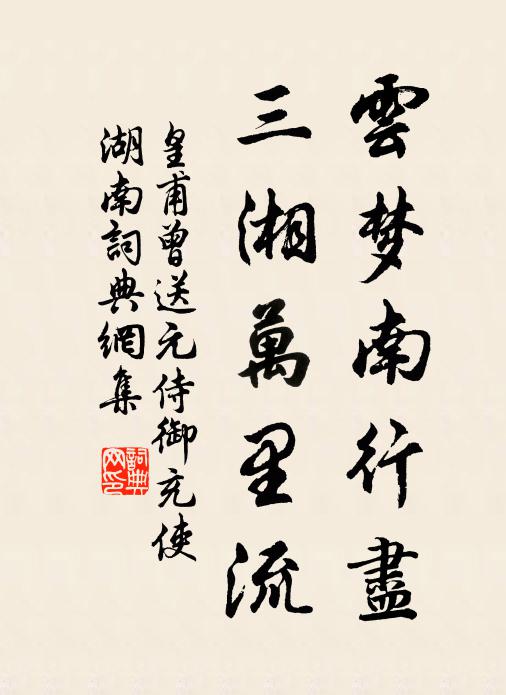 雲梦南行盡
三湘萬里流
皇甫曾送元侍御充使
湖南詞典網集
詞典网印